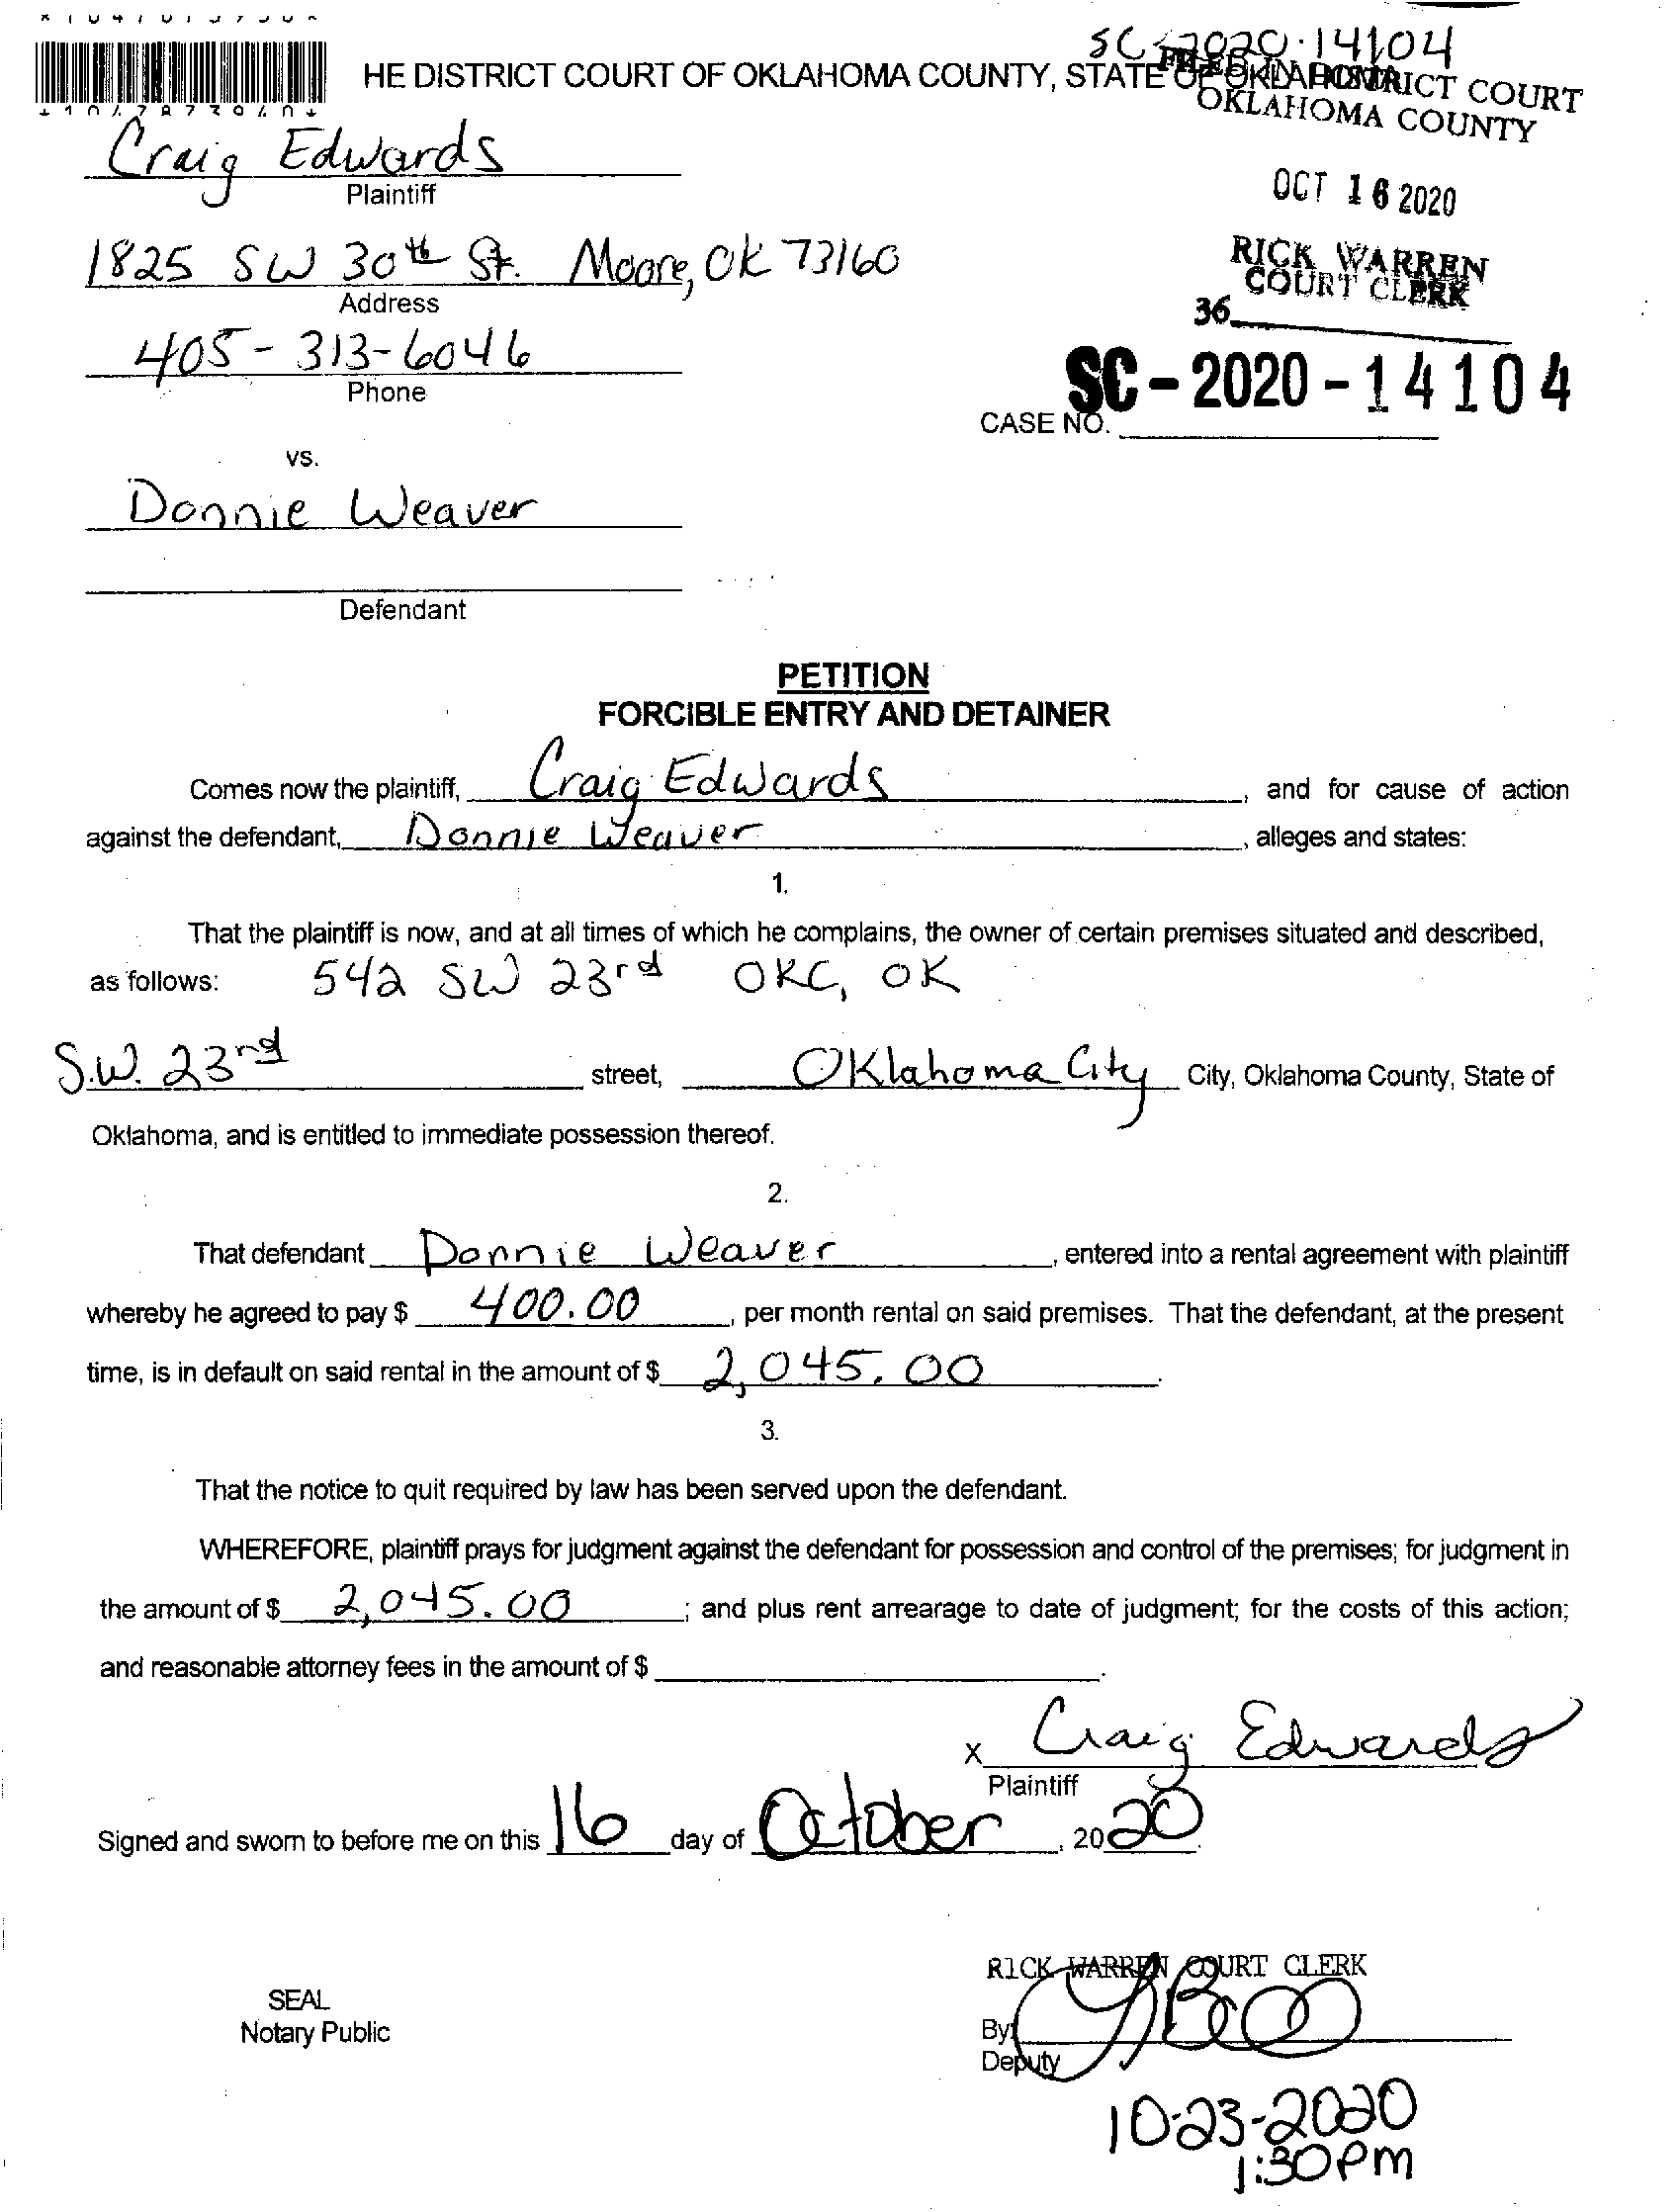 SC-2020-14104
HE DISTRICT COURT OF OKLAHOMA COUNTY, STATE OF OKLAHOMA
FILED IN DISTRICT COURT
OKLAHOMA COUNTY
Craig Edwards
Plaintiff
OCT 16 2020
1825 SW 30th St. Moore, OK 73160
Address
RICK WARREN
COURT CLERK
36
405-313-6046
Phone
SC-2020-14104
CASE NO.
vs.
Donnie Weaver
Defendant
PETITION
FORCIBLE ENTRY AND DETAINER
Comes now the plaintiff, Craig Edwards, and for cause of action
against the defendant, Donnie Weaver, alleges and states:
1.
That the plaintiff is now, and at all times of which he complains, the owner of certain premises situated and described,
as follows: 542 SW 23rd OKC, OK
S.W. 23rd street, Oklahoma City City, Oklahoma County, State of
Oklahoma, and is entitled to immediate possession thereof.
2.
That defendant Donnie Weaver, entered into a rental agreement with plaintiff
whereby he agreed to pay $ 400.00, per month rental on said premises. That the defendant, at the present
time, is in default on said rental in the amount of $ 2,045.00.
3.
That the notice to quit required by law has been served upon the defendant.
WHEREFORE, plaintiff prays for judgment against the defendant for possession and control of the premises; for judgment in
the amount of $ 2,045.00; and plus rent arrearage to date of judgment; for the costs of this action;
and reasonable attorney fees in the amount of $ .
x Craig Edwards
Plaintiff
Signed and sworn to before me on this 16 day of October, 2020.
RICK WARREN COURT CLERK
SEAL
Notary Public
By:
Deputy
10-23-2020
1:30pm